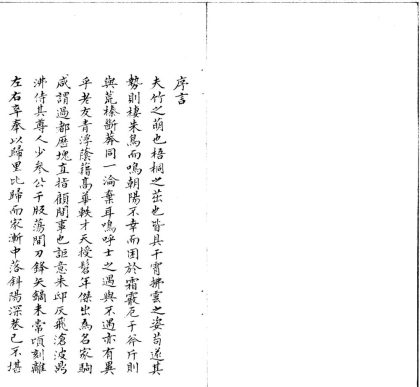 序言
夫竹之萌也梧桐之茁也皆具干霄拂雲之姿苟遂其
勢則棲朱鳥而鳴朝陽不幸而困於霜霰厄于斧斤則
與荒榛斷莽同一淪棄耳嗚呼士之遇與不遇亦有異
乎老友青浮蔭籍高華軼才天授髫年傑出為名家駒
咸謂過都歷塊直指顧間事也詎意朱邱灰飛滄波鼎
沸侍其尊人少參公于股蕩間刀鋒矢鏑未嘗頃刻離
左右卒奉以歸里比歸而家漸中落斜陽深巷已不堪